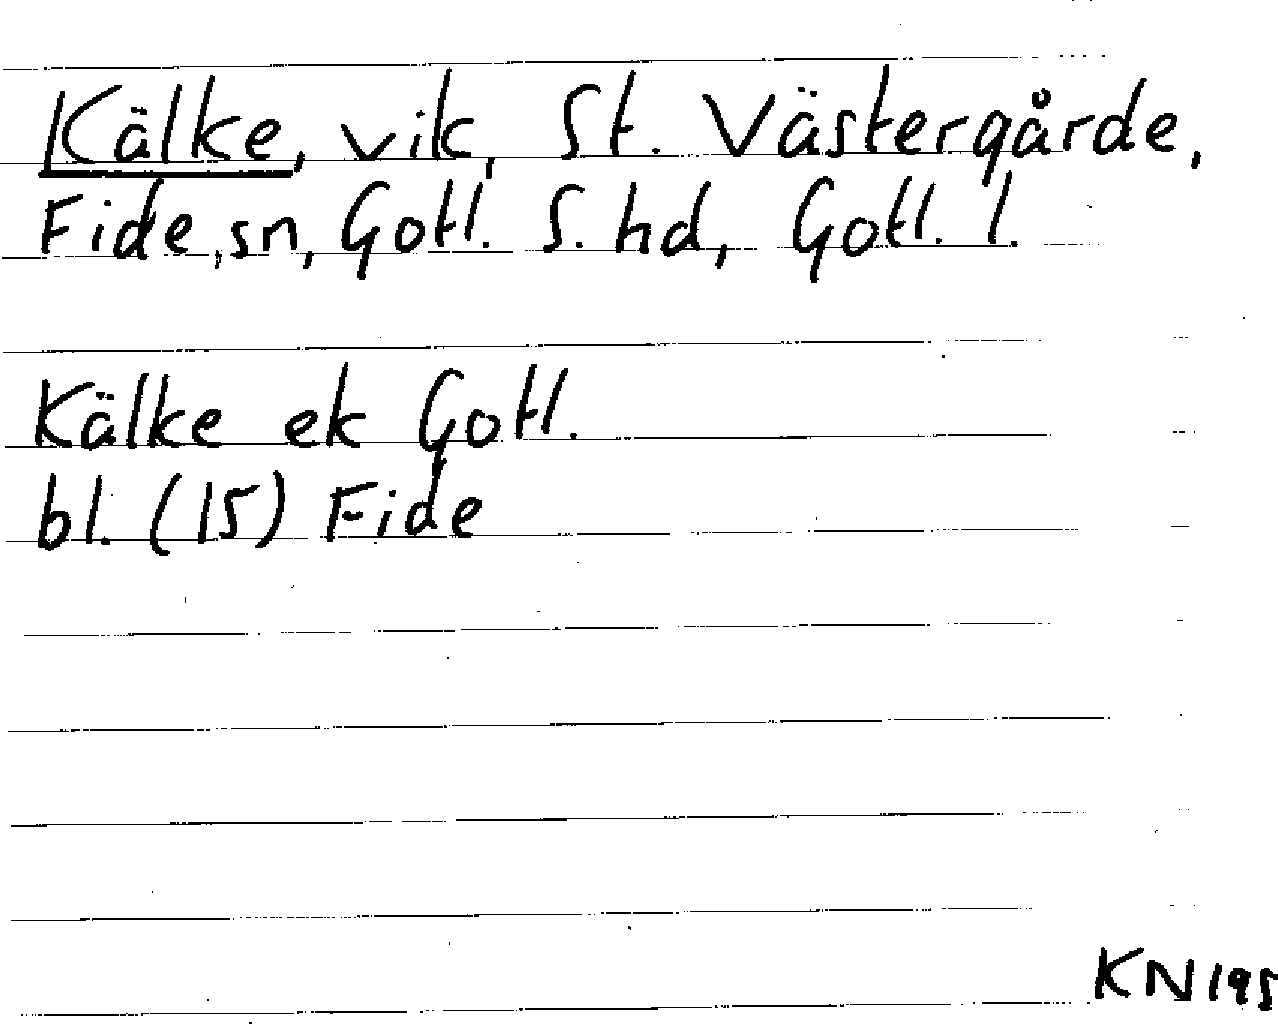 Kälke, vik, St. Västergårde,
Fide, sn, Gotl. S. hd, Gotl. l.
Kälke ek Gotl.
bl. (15) Fide
KN195